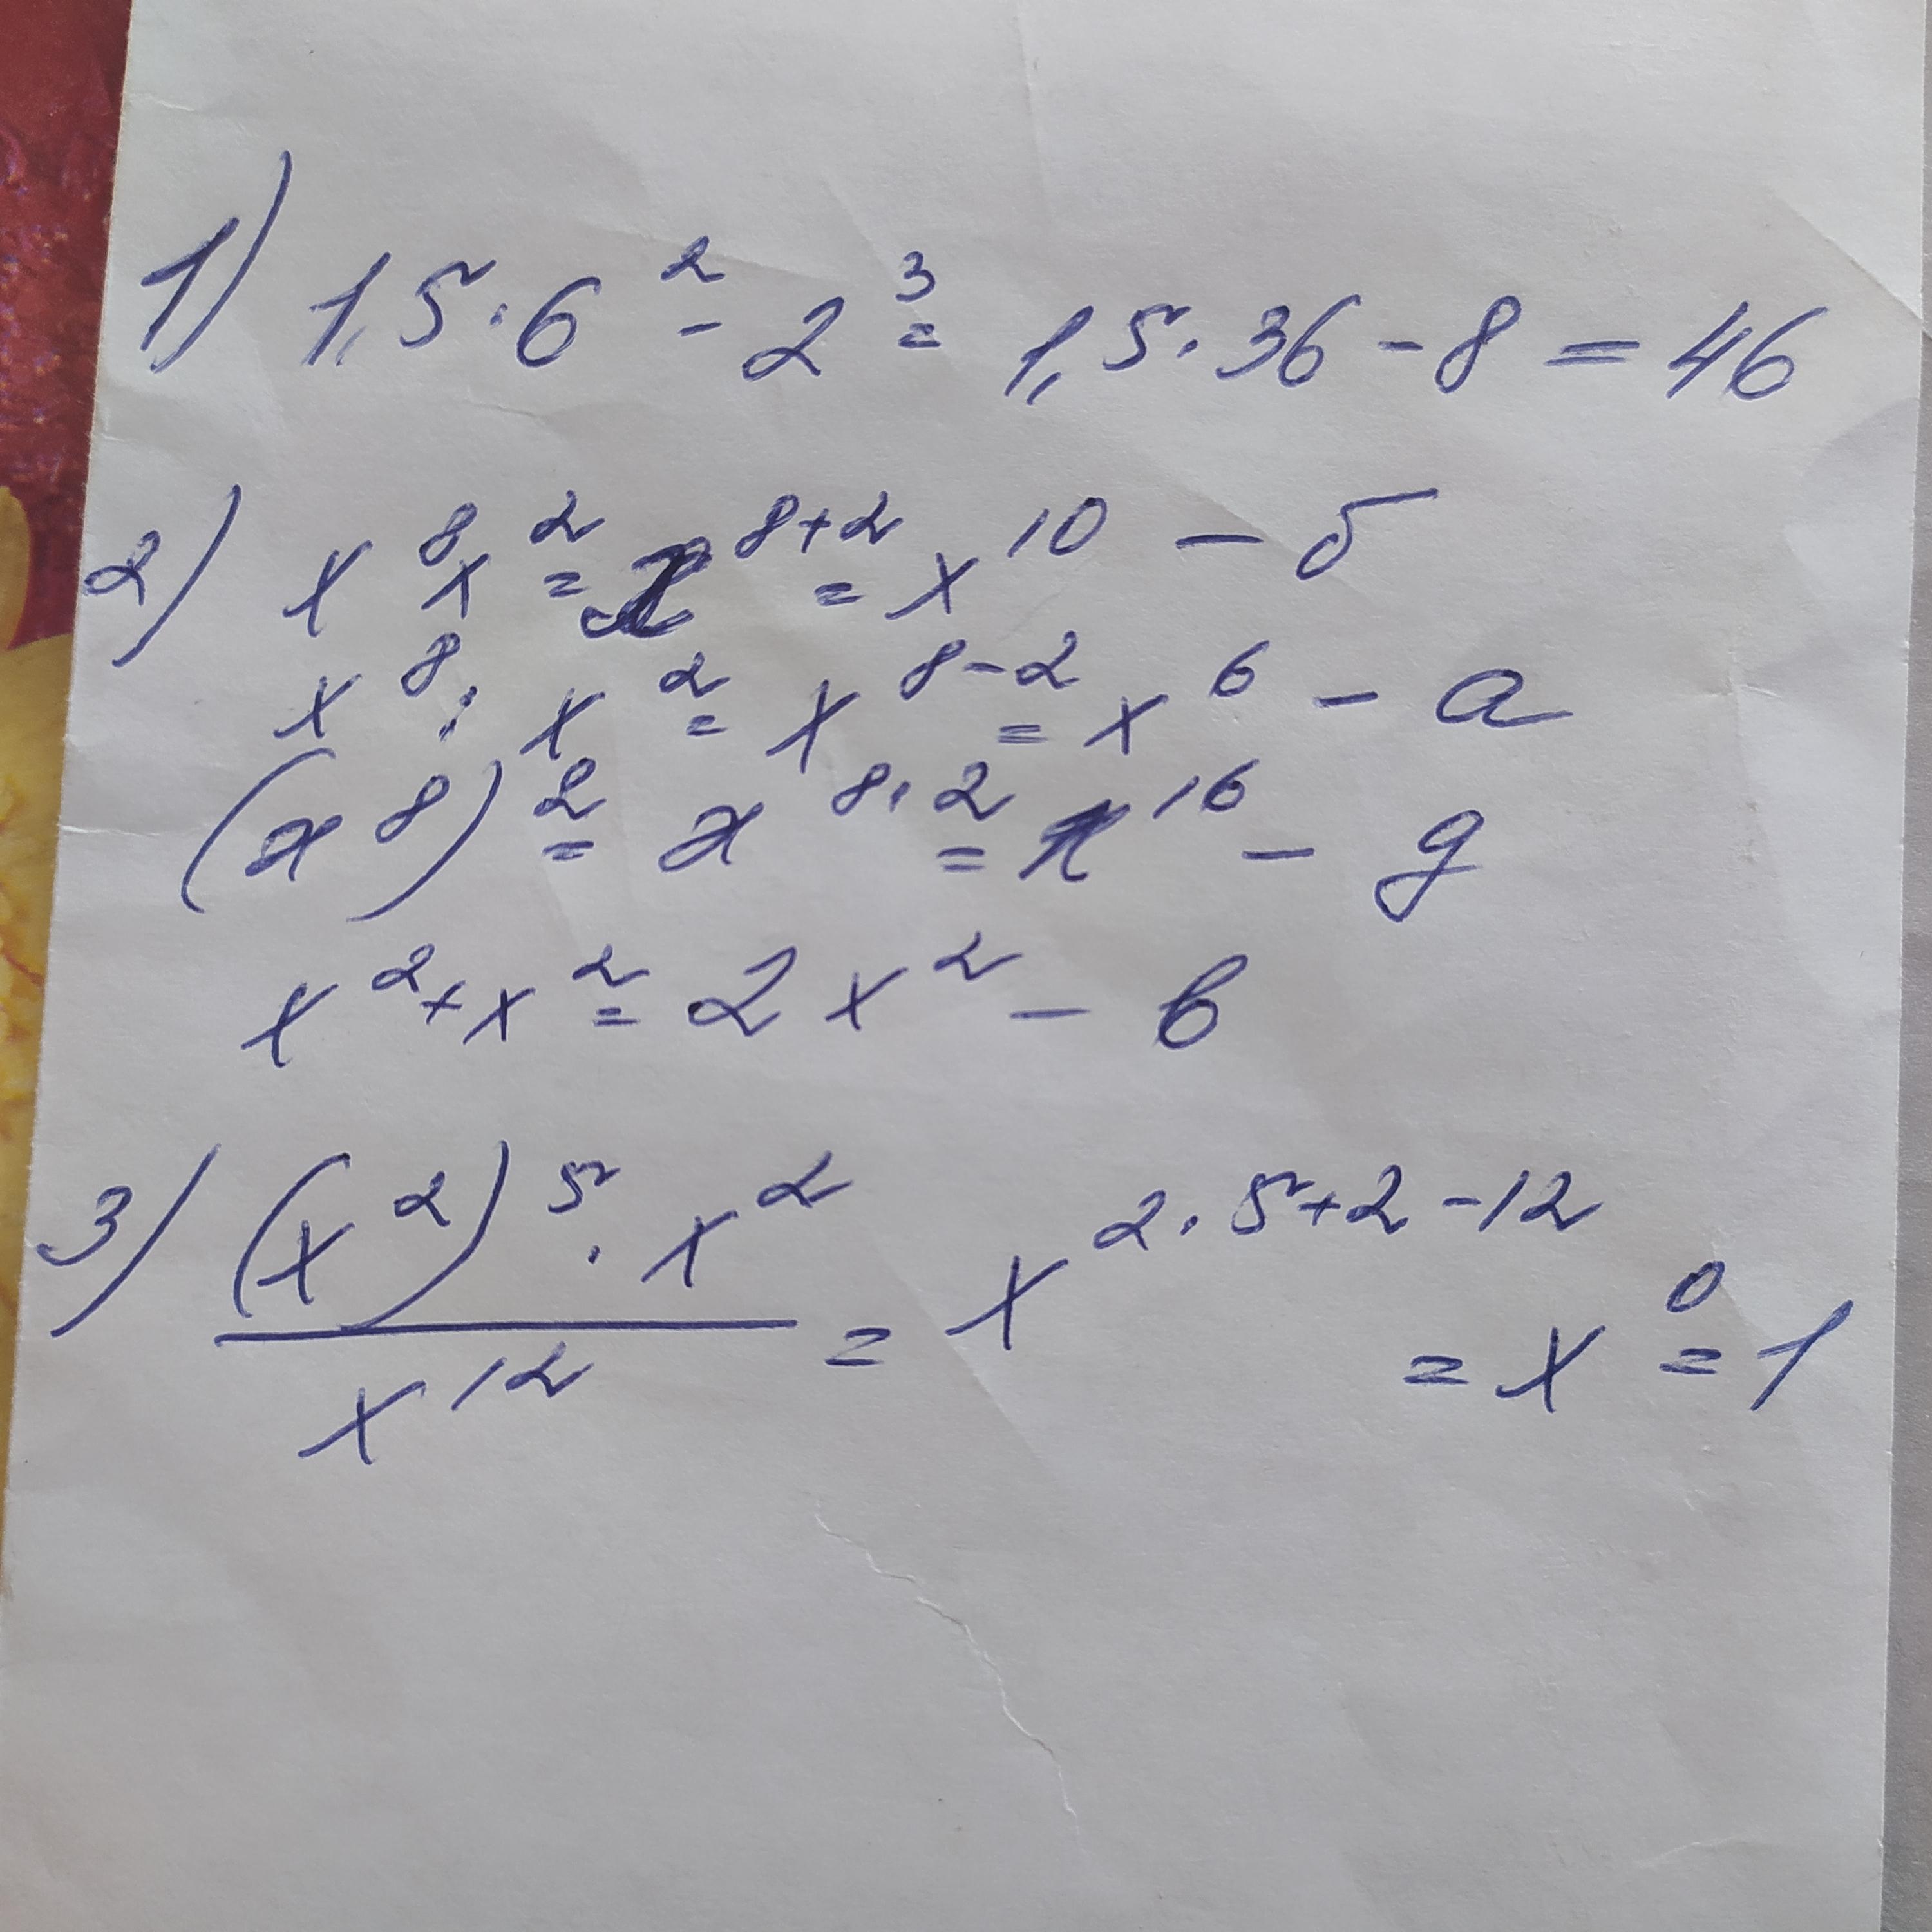 1) 1,5·6² - 2³ = 1,5·36 - 8 = 46
2) x⁸x² = x⁸⁺² = x¹⁰ - б
x⁸ : x² = x⁸⁻² = x⁶ - а
(x⁸)² = x⁸·² = x¹⁶ - д
x² + x² = 2x² - в
3) (x²)⁵ · x² / x¹² = x²·⁵⁺²⁻¹² = x⁰ = 1